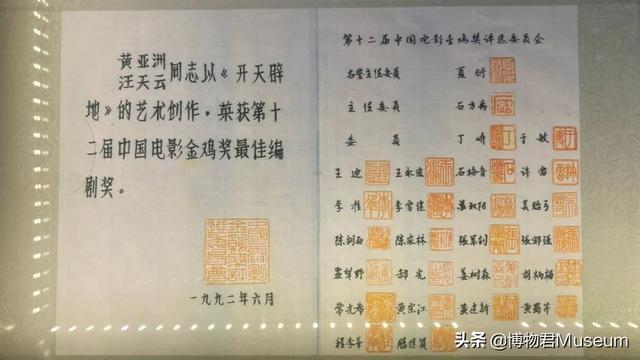 黄亚洲
汪天云 同志以《开天辟
地》的艺术创作，荣获第十
二届中国电影金鸡奖最佳编
剧奖。
一九九二年六月
第十二届中国电影金鸡奖评选委员会
名誉主任委员 夏衍
主任委员 石方禹
委员 丁峤 于敏
王迪 王永宏 石梅音 许雷
李准 李常健 吴贻弓
陈剑雨 陈家林 张军钊
孟犁野 邵光 姜树森 胡炳榴
常光希 黄宗江 黄建新 黄蜀芹
程季华 滕进贤
头条 @博物君Museum